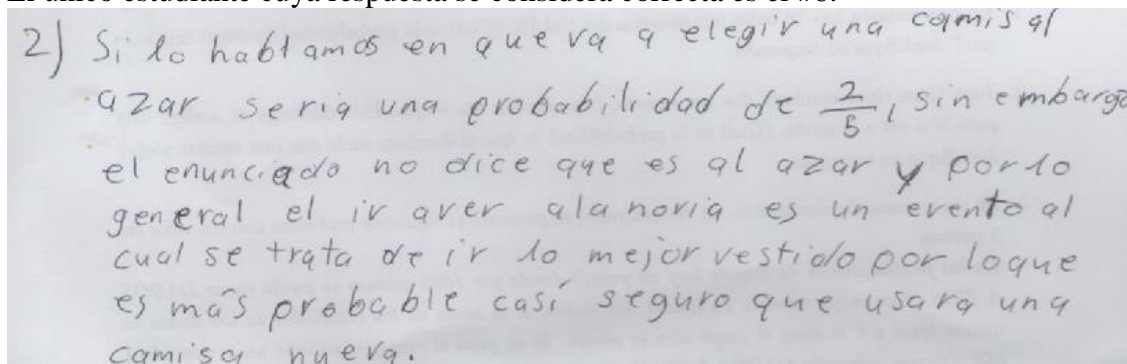 El único estudiante cuya respuesta se considera correcta es el #8:
2) Si lo hablamos en que va a elegir una camisa al
azar seria una probabilidad de 2/5, sin embargo
el enunciado no dice que es al azar y por lo
general el ir a ver a la novia es un evento al
cual se trata de ir lo mejor vestido por lo que
es más probable casí seguro que usara una
camisa nueva.